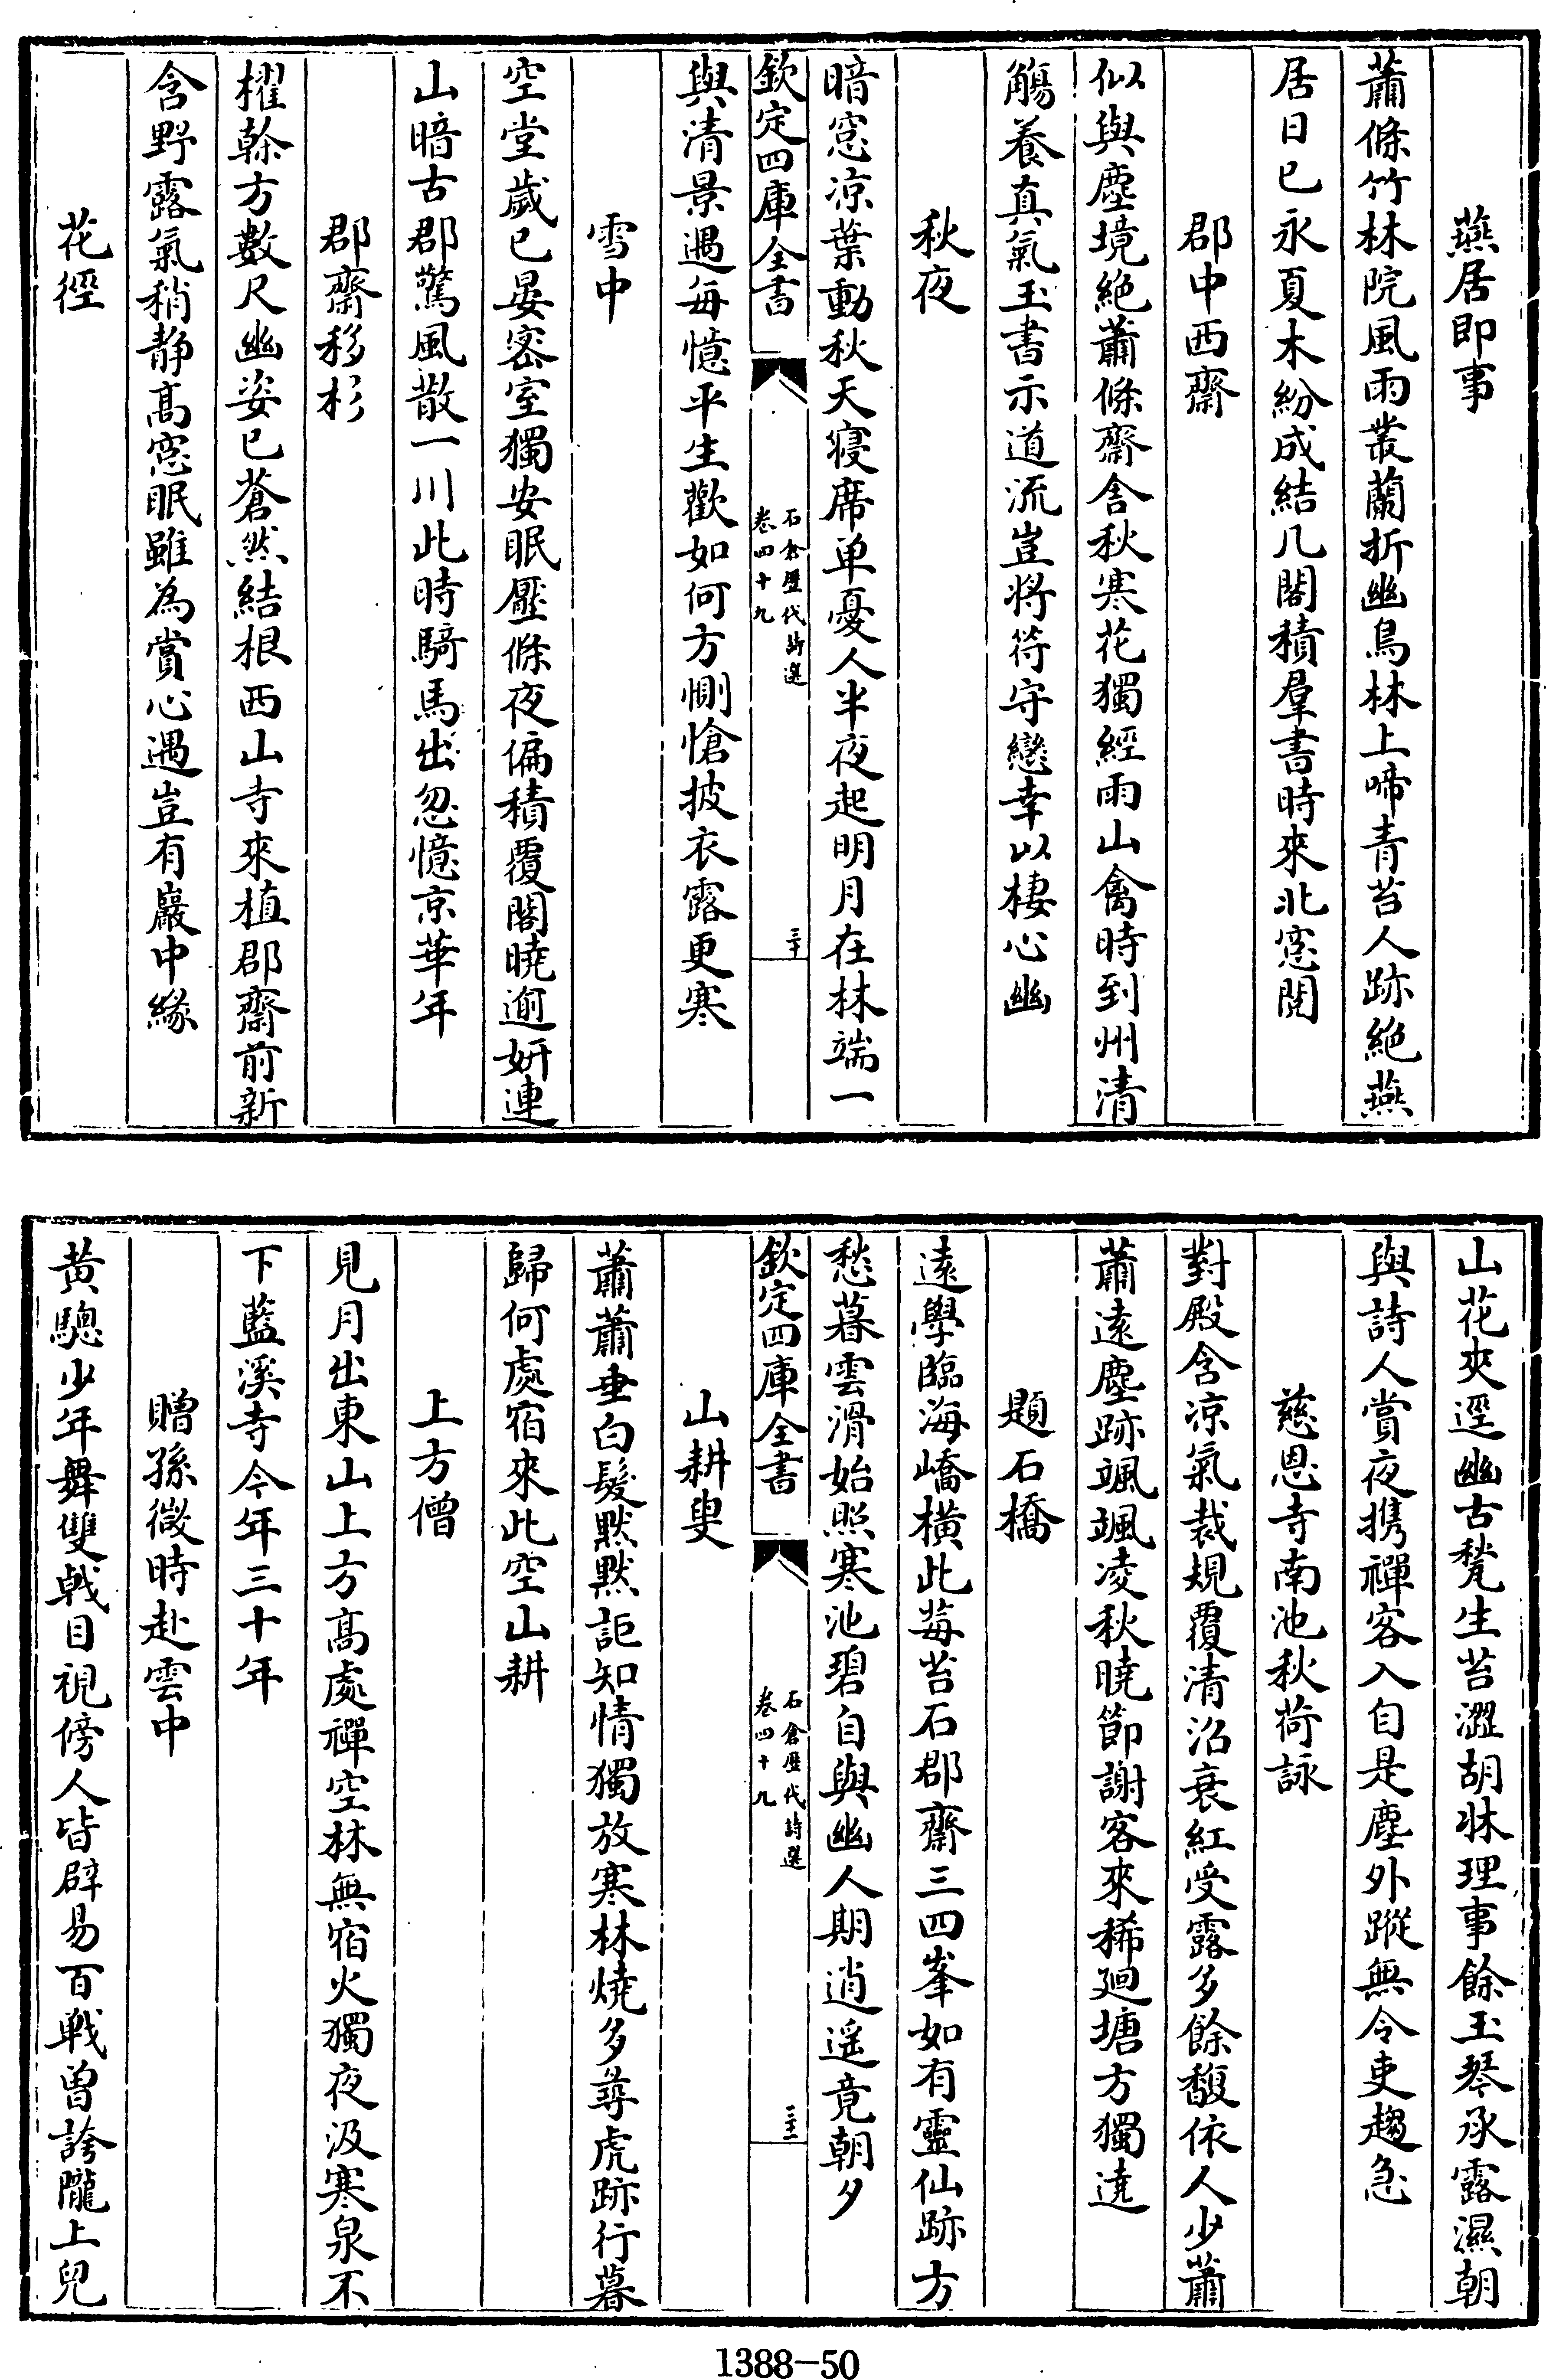 燕居即事
蕭條竹林院風雨叢蘭折幽鳥林上啼青苔人跡絶燕
居日已永夏木紛成結几閣積羣書時來北窓閲
郡中西齋
似與塵境絶蕭條齋舍秋寒花獨經雨山禽時到州清
觴養真氣玉書示道流豈將符守戀幸以棲心幽
秋夜
暗窓凉葉動秋天寝席单憂人半夜起明月在林端一
欽定四庫全書
石倉歷代詩選
卷四十九
三十
與清景遇每憶平生歡如何方惻愴披衣露更寒
雪中
空堂歲已晏密室獨安眠壓條夜偏積覆閣曉逾妍連
山暗古郡驚風散一川此時騎馬出忽憶京華年
郡齋移杉
櫂榦方數尺幽姿已蒼然結根西山寺來植郡齋前新
含野露氣稍静髙窓眠雖為賞心遇豈有巖中緣
花徑
山花夾逕幽古甃生苔澀胡牀理事餘玉琴承露濕朝
與詩人賞夜携禪客入自是塵外蹤無令吏趨急
慈恩寺南池秋荷詠
對殿含凉氣裁規覆清沼衰紅受露多餘馥依人少蕭
蕭遠塵跡颯颯凌秋曉節謝客來稀廻塘方獨遶
題石橋
逺學臨海嶠橫此莓苔石郡齋三四峯如有靈仙跡方
愁暮雲滑始照寒池碧自與幽人期逍遥竟朝夕
欽定四庫全書
石倉歷代詩選
卷四十九
三十一
山耕叟
蕭蕭垂白髮黙黙詎知情獨放寒林燒多尋虎跡行暮
歸何處宿來此空山耕
上方僧
見月出東山上方髙處禪空林無宿火獨夜汲寒泉不
下藍溪寺今年三十年
贈孫徴時赴雲中
黄驄少年舞雙戟目視傍人皆辟易百戰曽誇隴上兒
1388-50